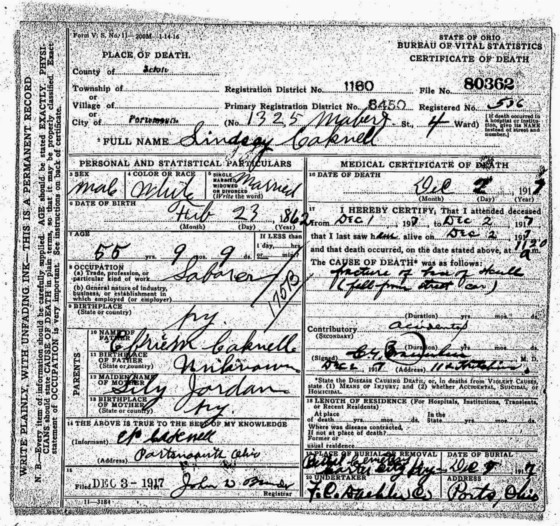 Form V. S. No. 11-200M-1-14-16
STATE OF OHIO
BUREAU OF VITAL STATISTICS
CERTIFICATE OF DEATH
PLACE OF DEATH.
County of Scioto
Township of
or
Village of
or
City of Portsmouth
Registration District No. 1160
File No. 80362
Primary Registration District No. 8450
Registered No. 536
(No. 1325 St., 4 Ward)
[If death occurred in a hospital or institution, give its NAME instead of street and number.]
FULL NAME Lindsay
PERSONAL AND STATISTICAL PARTICULARS
3 SEX
male
4 COLOR OR RACE
White
5 SINGLE MARRIED WIDOWED OR DIVORCED (Write the word)
Married
6 DATE OF BIRTH
Feb 23 1862
(Month) (Day) (Year)
7 AGE
55 yrs. 9 mos. 9 ds.
If LESS than 1 day, hrs. or min?
8 OCCUPATION
(a) Trade, profession, or particular kind of work
Laborer
(b) General nature of industry, business, or establishment in which employed (or employer)
9 BIRTHPLACE
(State or country)
Ky
PARENTS
10 NAME OF FATHER
11 BIRTHPLACE OF FATHER
(State or country)
Unknown
12 MAIDEN NAME OF MOTHER
Jordan
13 BIRTHPLACE OF MOTHER
(State or country)
Ky
14 THE ABOVE IS TRUE TO THE BEST OF MY KNOWLEDGE
(Informant)
(Address) Portsmouth Ohio
15
Filed DEC 3 - 1917 John
Registrar
11-3184
MEDICAL CERTIFICATE OF DEATH
16 DATE OF DEATH
Dec 2 1917
(Month) (Day) (Year)
17 I HEREBY CERTIFY, That I attended deceased
from Dec 1 1917 Dec 2 1917
that I last saw him alive on Dec 2 1917
and that death occurred, on the date stated above, at 1120 m.
The CAUSE OF DEATH* was as follows:
fracture of base of skull
(fell from street car)
(Duration) yrs. mos. ds.
Contributory accidental
(SECONDARY)
(Duration) yrs. mos. ds.
(Signed) M. D.
Dec 1917 (Address)
*State the DISEASE CAUSING DEATH, or, in deaths from VIOLENT CAUSES, state (1) MEANS OF INJURY; and (2) whether ACCIDENTAL, SUICIDAL, or HOMICIDAL.
18 LENGTH OF RESIDENCE (For Hospitals, Institutions, Transients, or Recent Residents)
At place of death yrs. mos. ds. In the State yrs. mos. ds.
Where was disease contracted, if not at place of death?
Former or usual residence
19 PLACE OF BURIAL OR REMOVAL
DATE OF BURIAL
20 UNDERTAKER
ADDRESS
Ohio
WRITE PLAINLY, WITH UNFADING INK—THIS IS A PERMANENT RECORD
N. B.—Every item of information should be carefully supplied. AGE should be stated EXACTLY. PHYSICIANS should state CAUSE OF DEATH in plain terms, so that it may be properly classified. Exact statement of OCCUPATION is very important. See instructions on back of certificate.